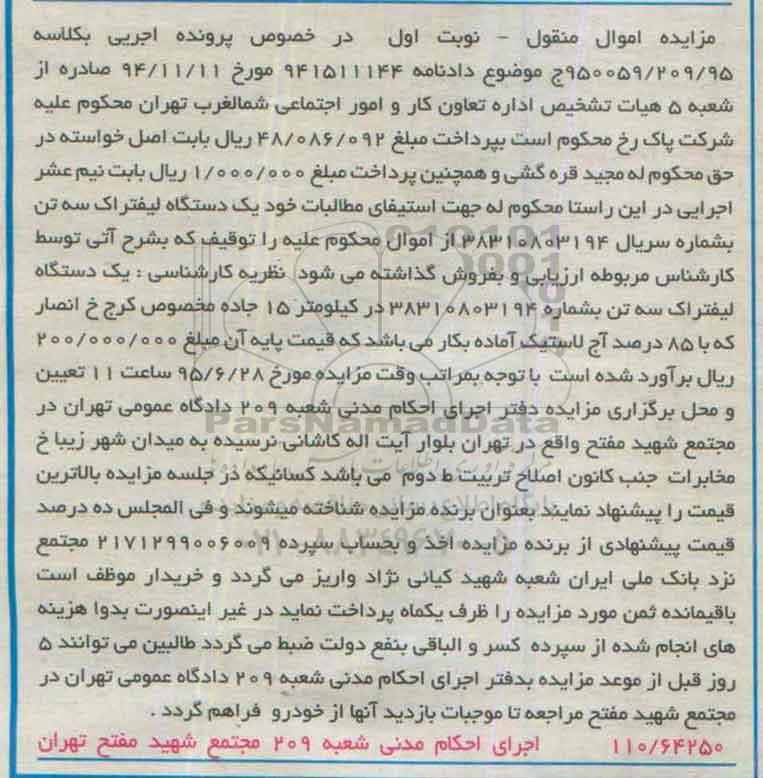 مزایده اموال منقول - نوبت اول در خصوص پرونده اجریی بکلاسه
۹۵۰۰۵۹/۲۰۹/۹۵ج موضوع دادنامه ۹۴۱۵۱۱۱۴۴ مورخ ۹۴/۱۱/۱۱ صادره از
شعبه ۵ هیات تشخیص اداره تعاون کار و امور اجتماعی شمالغرب تهران محکوم علیه
شرکت پاک رخ محکوم است بپرداخت مبلغ ۴۸/۰۸۶/۰۹۲ ریال بابت اصل خواسته در
حق محکوم له مجید قره گشی و همچنین پرداخت مبلغ ۱/۰۰۰/۰۰۰ ریال بابت نیم عشر
اجرایی در این راستا محکوم له جهت استیفای مطالبات خود یک دستگاه لیفتراک سه تن
بشماره سریال ۳۸۳۱۰۸۰۳۱۹۴ از اموال محکوم علیه را توقیف که بشرح آتی توسط
کارشناس مربوطه ارزیابی و بفروش گذاشته می شود نظریه کارشناسی : یک دستگاه
لیفتراک سه تن بشماره ۳۸۳۱۰۸۰۳۱۹۴ در کیلومتر ۱۵ جاده مخصوص کرج خ انصار
که با ۸۵ درصد آج لاستیک آماده بکار می باشد که قیمت پایه آن مبلغ ۲۰۰/۰۰۰/۰۰۰
ریال برآورد شده است با توجه بمراتب وقت مزایده مورخ ۹۵/۶/۲۸ ساعت ۱۱ تعیین
و محل برگزاری مزایده دفتر اجرای احکام مدنی شعبه ۲۰۹ دادگاه عمومی تهران در
ParsNamadData
مجتمع شهید مفتح واقع در تهران بلوار آیت اله کاشانی نرسیده به میدان شهر زیبا خ
مخابرات جنب کانون اصلاح تربیت ط دوم می باشد کسانیکه در جلسه مزایده بالاترین
قیمت را پیشنهاد نمایند بعنوان برنده مزایده شناخته میشوند و فی المجلس ده درصد
قیمت پیشنهادی از برنده مزایده اخذ و بحساب سپرده ۲۱۷۱۲۹۹۰۰۶۰۰۱ مجتمع
نزد بانک ملی ایران شعبه شهید کیائی نژاد واریز می گردد و خریدار موظف است
باقیمانده ثمن مورد مزایده را ظرف یکماه پرداخت نماید در غیر اینصورت بدوا هزینه
های انجام شده از سپرده کسر و الباقی بنفع دولت ضبط می گردد طالبین می توانند ۵
روز قبل از موعد مزایده بدفتر اجرای احکام مدنی شعبه ۲۰۹ دادگاه عمومی تهران در
مجتمع شهید مفتح مراجعه تا موجبات بازدید آنها از خودرو فراهم گردد .
۱۱۰/۶۴۲۵۰ اجرای احکام مدنی شعبه ۲۰۹ مجتمع شهید مفتح تهران